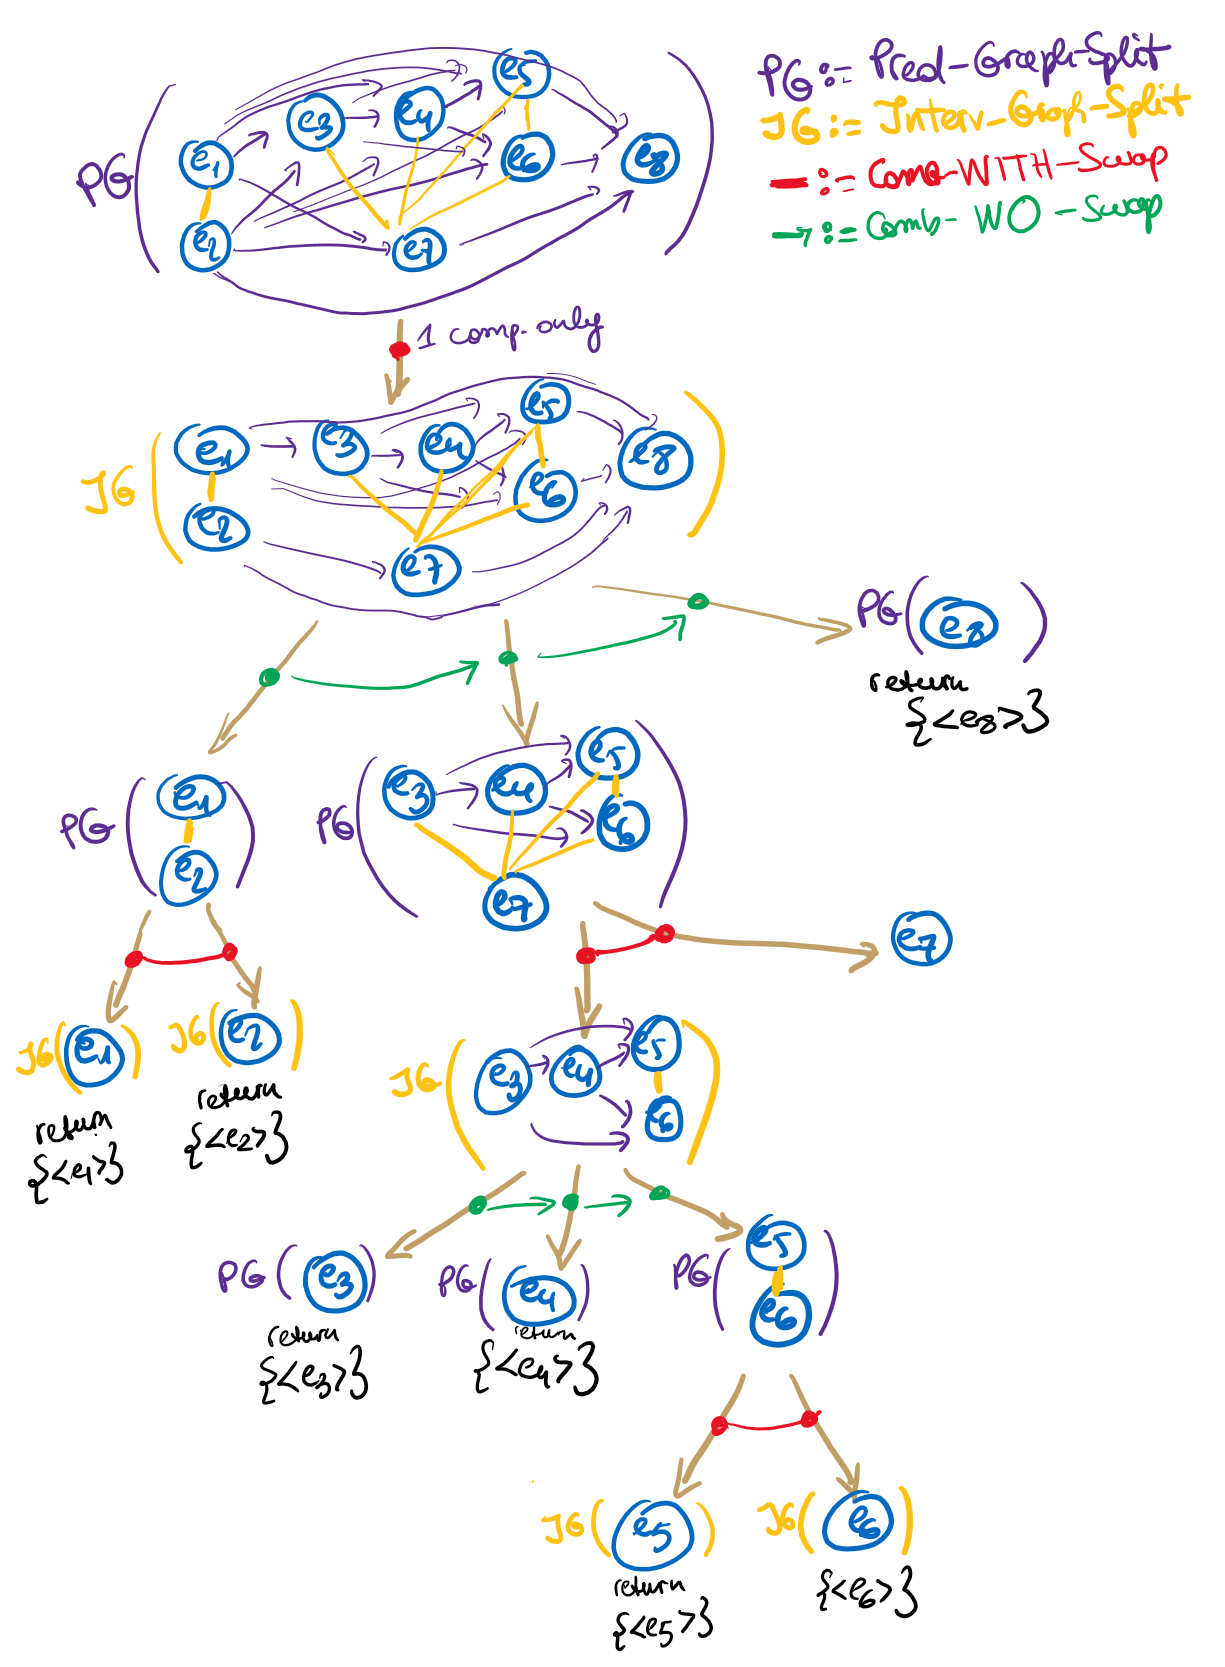 PG := Pred-Graph-Split
IG := Interv-Graph-Split
— := Comb-WITH-Swap
→ := Comb-WO-Swap
PG( e1 e2 e3 e4 e5 e6 e7 e8 )
1 comp. only
IG( e1 e2 e3 e4 e5 e6 e7 e8 )
PG( e8 )
return
{<e8>}
PG( e1 e2 )
PG( e3 e4 e5 e6 e7 )
e7
IG( e1 )
return
{<e1>}
IG( e2 )
return
{<e2>}
IG( e3 e4 e5 e6 )
PG( e3 )
return
{<e3>}
PG( e4 )
return
{<e4>}
PG( e5 e6 )
IG( e5 )
return
{<e5>}
IG( e6 )
{<e6>}